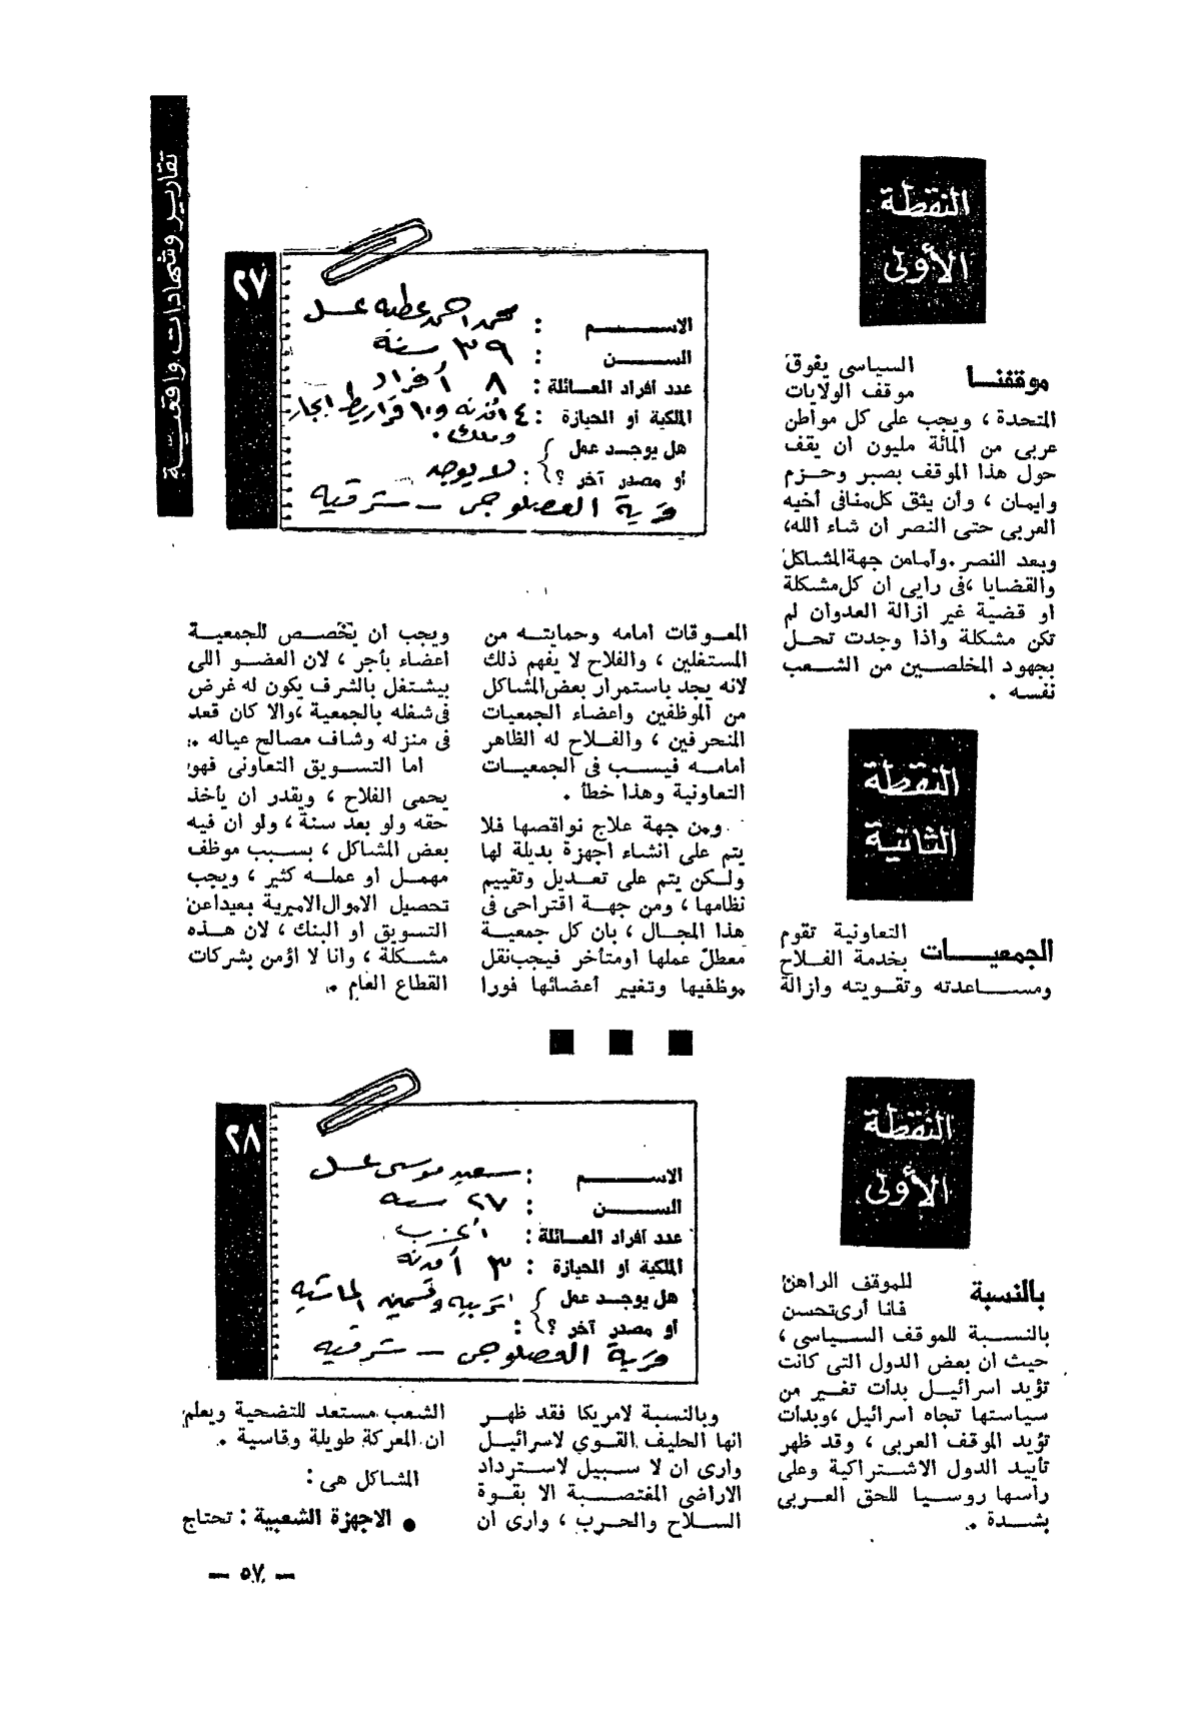 تقارير وشهادات واقعية
النقطة
الأولى
٢٧
الاســـــــم : محمد احمد عطيه عسل
الســـــــن : ٣٩ سنة
عدد أفراد العـــائلة : ٨ أفراد
الملكية او الحيازة : ٤ افدنه و١٠ قراريط ايجار
وملك .
هل يوجـــد عمل
أو مصدر آخر ؟ : لا يوجد
قرية العصلوجى – شرقيه
موقفنـــا السياسى يفوق
موقف الولايات
المتحدة ، ويجب على كل مواطن
عربى من المائة مليون ان يقف
حول هذا الموقف بصبر وحـــزم
وايمان ، وأن يثق كل منا فى أخيه
العربى حتى النصر ان شاء الله،
وبعد النصر . وأما من جهة المشاكل
والقضايا ،فى رايى ان كل مشكلة
او قضية غير ازالة العدوان لم
تكن مشكلة واذا وجدت تحـــل
بجهود المخلصـــين من الشـــعب
نفسه .
النقطة
الثانية
الجمعيـــــات التعاونية تقوم
بخدمة الفـــلاح
ومســـــاعدته وتقـــويته وازالة
المعـــوقات امامه وحمايتـــه من
المستغلين ، والفلاح لا يفهم ذلك
لانه يجد باستمرار بعض المشاكل
من الموظفين واعضاء الجمعيات
المنحرفين ، والفـــلاح له الظاهر
امامـــه فيســـب فى الجمعيـــات
التعاونية وهذا خطأ .
ومن جهة علاج نواقصها فلا
يتم على انشاء اجهزة بديلة لها
ولـــكن يتم على تعـــديل وتقييم
نظامها ، ومن جهـــة اقتراحى فى
هذا المجـــال ، بان كل جمعيـــة
معطل عملها او متأخر فيجب نقل
موظفيها وتغيير أعضائها فورا
ويجب ان يخصـــص للجمعيـــة
اعضاء بأجر ، لان العضـــو اللى
بيشتغل بالشرف يكون له غرض
فى شغله بالجمعية ،والا كان قعد
فى منزله وشاف مصالح عياله .
اما التســـويق التعاونى فهو
يحمى الفلاح ، ويقدر ان يأخذ
حقه ولو بعد سنة ، ولو ان فيه
بعض المشاكل ، بســـبب موظف
مهمـــل او عملـــه كثير ، ويجب
تحصيل الاموال الاميرية بعيدا عن
التسويق او البنك ، لان هـــذه
مشـــكلة ، وانا لا اؤمن بشركات
القطاع العام .
النقطة
الأولى
٢٨
الاســـــــم : سعيد موسى عسل
الســـــــن : ٢٧ سنه
عدد أفراد العـــائلة : أعزب
الملكية او الحيازة : ٣ أفدنه
هل يوجـــد عمل
أو مصدر آخر ؟ : تربيه وتسمين الماشيه
قرية العصلوجى – شرقيه
بالنسبة للموقف الراهن
فانا أرى تحسن
بالنســـبة للموقف الســـياسى ،
حيث ان بعض الدول التى كانت
تؤيد اسرائيـــل بدات تغـــير من
سياستها تجاه اسرائيل ،وبدات
تؤيد الموقف العربى ، وقد ظهر
تأييد الدول الاشـــتراكية وعلى
رأسها روسيا للحق العـــربى
بشـــدة .
وبالنسبة لامريكا فقد ظهـــر
انها الحليف القوي لاسرائيـــل
وارى ان لا سبيل لاســـترداد
الاراضى المغتصـــبة الا بقـــوة
الســـلاح والحـــرب ، وارى ان
الشعب مستعد للتضحية ويعلم
ان المعركة طويلة وقاسية .
المشاكل هى :
● الاجهزة الشعبية : تحتاج
— ٥٧ —